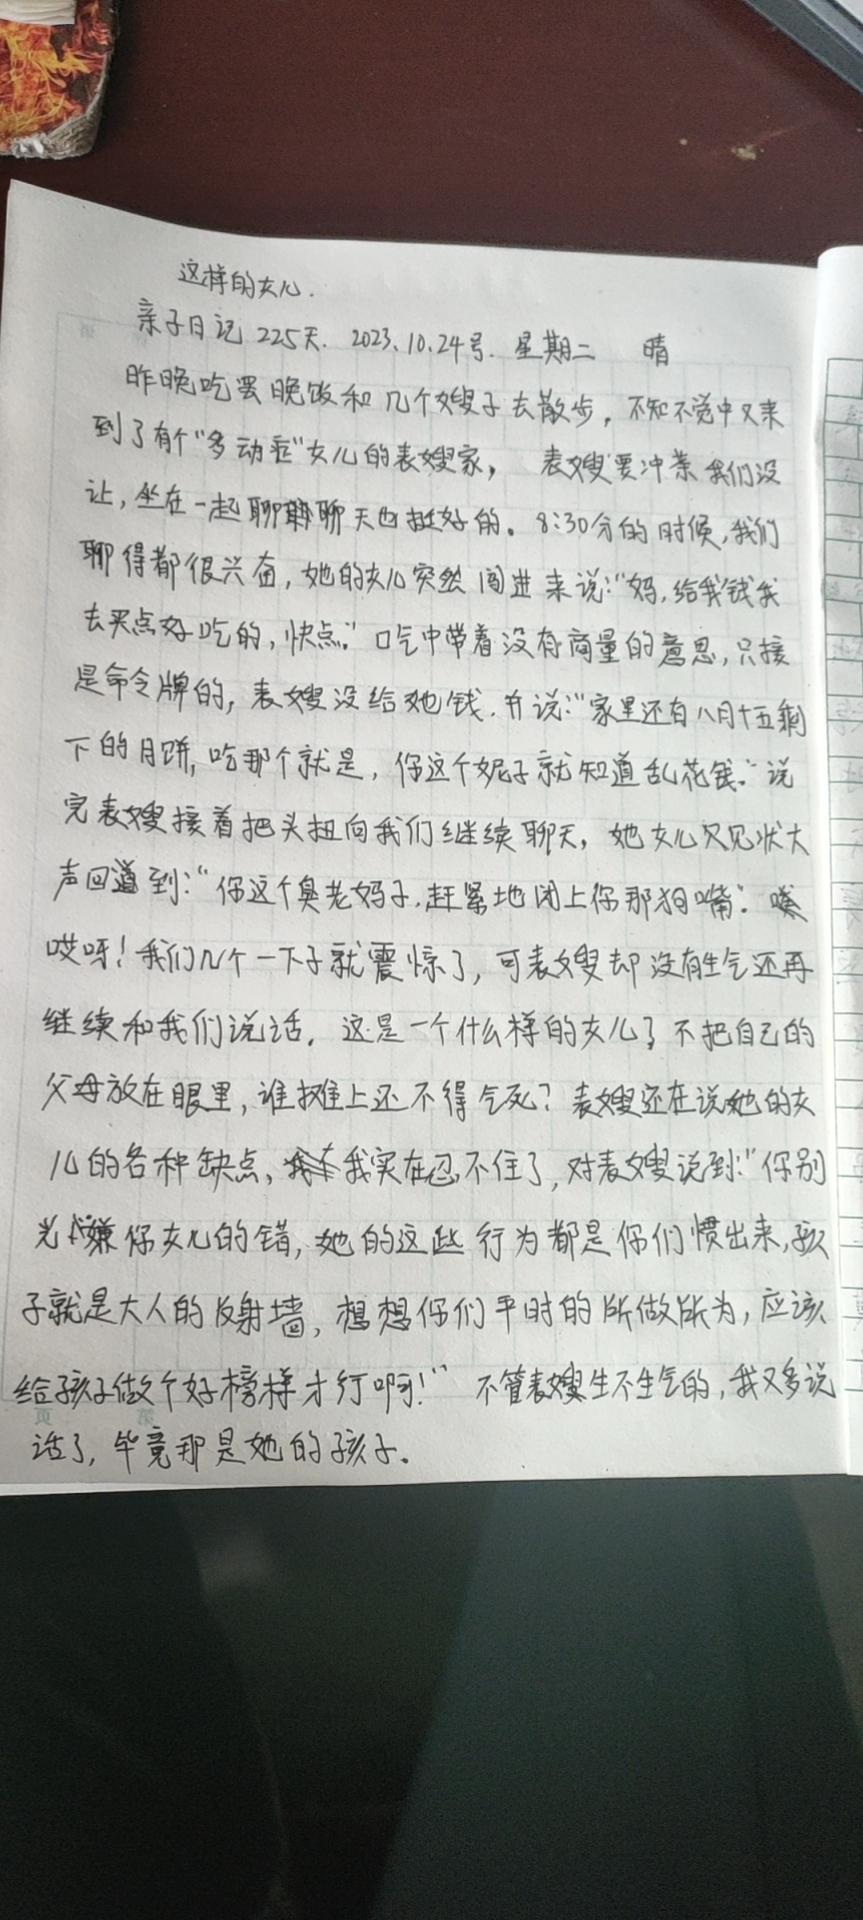 这样的女儿.
亲子日记225天. 2023.10.24号. 星期二 晴
昨晚吃罢晚饭和几个嫂子去散步，不知不觉中又来
到了有个“多动症”女儿的表嫂家， 表嫂要冲茶我们没
让，坐在一起聊聊天也挺好的。8:30分的时候，我们
聊得都很兴奋，她的女儿突然闯进来说：“妈，给我钱我
去买点好吃的，快点。”口气中带着没有商量的意思，只接
是命令牌的，表嫂没给她钱.并说：“家里还有八月十五剩
下的月饼，吃那个就是，你这个妮子就知道乱花钱。”说
完表嫂接着把头扭向我们继续聊天，她女儿见状大
声回道到：“你这个臭老妈子，赶紧地闭上你那狗嘴”。
哎呀！我们几个一下子就震惊了，可表嫂却没有生气还再
继续和我们说话，这是一个什么样的女儿？不把自己的
父母放在眼里，谁摊上还不得气死？表嫂还在说她的女
儿的各种缺点，我实在忍不住了，对表嫂说到：“你别
光嫌你女儿的错，她的这些行为都是你们惯出来，孩
子就是大人的反射墙，想想你们平时的所做所为，应该
给孩子做个好榜样才行啊！”不管表嫂生不生气的，我又多说
话了，毕竟那是她的孩子。